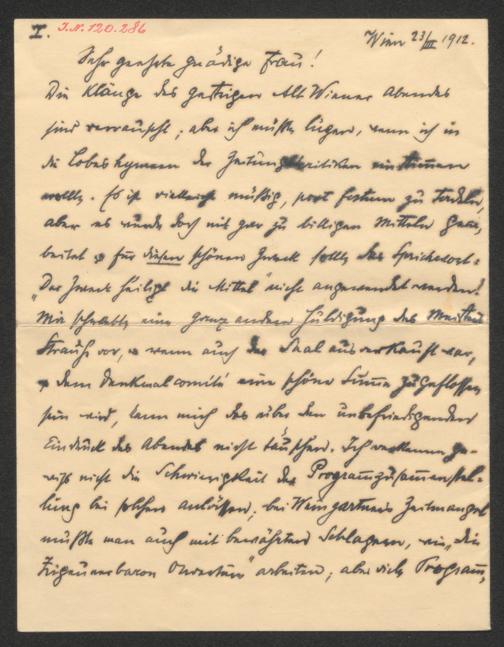 I. I.N. 120.286
Wien 23/III 1912.
Sehr geehrte gnädige Frau!
Die Klänge des gestrigen Alt Wiener Abendes
sind verrauscht; aber ich müßte lügen, wenn ich in
die Lobeshymnen der Zeitungskritiken einstimmen
wollte. Es ist vielleicht müßig, post festum zu tadeln,
aber es wurde doch mit gar zu billigen Mitteln gear-
beitet u für diesen schönen Zweck sollte das Sprichwort:
"Der Zweck heiligt die Mittel" nicht angewendet werden!
Mir schwebte eine ganz andere Huldigung des Meisters
Strauss vor, u wenn auch der Saal ausverkauft war,
u dem Denkmalcomité eine schöne Summe zugeflossen
sein wird, kann mich das über den unbefriedigenden
Eindruck des Abendes nicht täuschen. Ich verkenne ge-
wiß nicht die Schwierigkeit der Programmzusammenstel-
lung bei solchen Anlässen, bei Weingartners Zeitmangel
mußte man auch mit bewährten Schlagern, wie "die
Zigeunerbaron Ouverture" arbeiten; aber Programm,